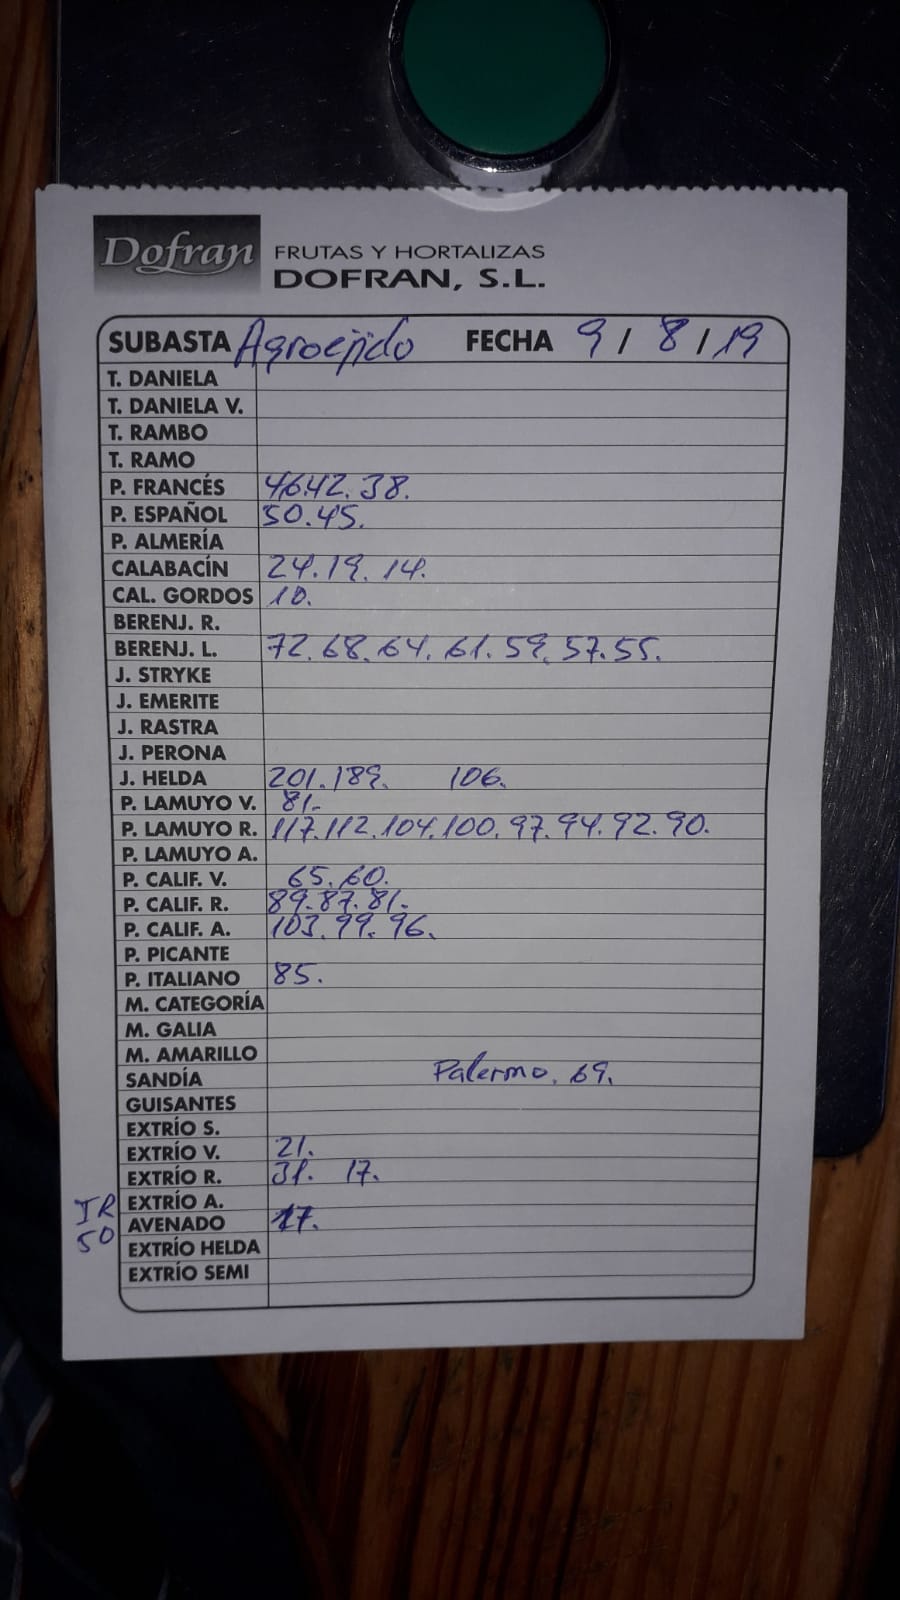 Dofran FRUTAS Y HORTALIZAS
DOFRAN, S.L.
SUBASTA Agroejido FECHA 9 / 8 / 19
T. DANIELA
T. DANIELA V.
T. RAMBO
T. RAMO
P. FRANCÉS 46.42. 38.
P. ESPAÑOL 50.45.
P. ALMERÍA
CALABACÍN 24.19. 14.
CAL. GORDOS 10.
BERENJ. R.
BERENJ. L. 72.68.64.61.59.57.55.
J. STRYKE
J. EMERITE
J. RASTRA
J. PERONA
J. HELDA 201.189. 106.
P. LAMUYO V. 81.
P. LAMUYO R. 117.112.104.100.97.94.92.90.
P. LAMUYO A.
P. CALIF. V. 65.60.
P. CALIF. R. 89.87.81.
P. CALIF. A. 103.99.96.
P. PICANTE
P. ITALIANO 85.
M. CATEGORÍA
M. GALIA
M. AMARILLO
SANDÍA Palermo. 69.
GUISANTES
EXTRÍO S.
EXTRÍO V. 21.
EXTRÍO R. 31. 17.
IR EXTRÍO A.
AVENADO 17.
50 EXTRÍO HELDA
EXTRÍO SEMI